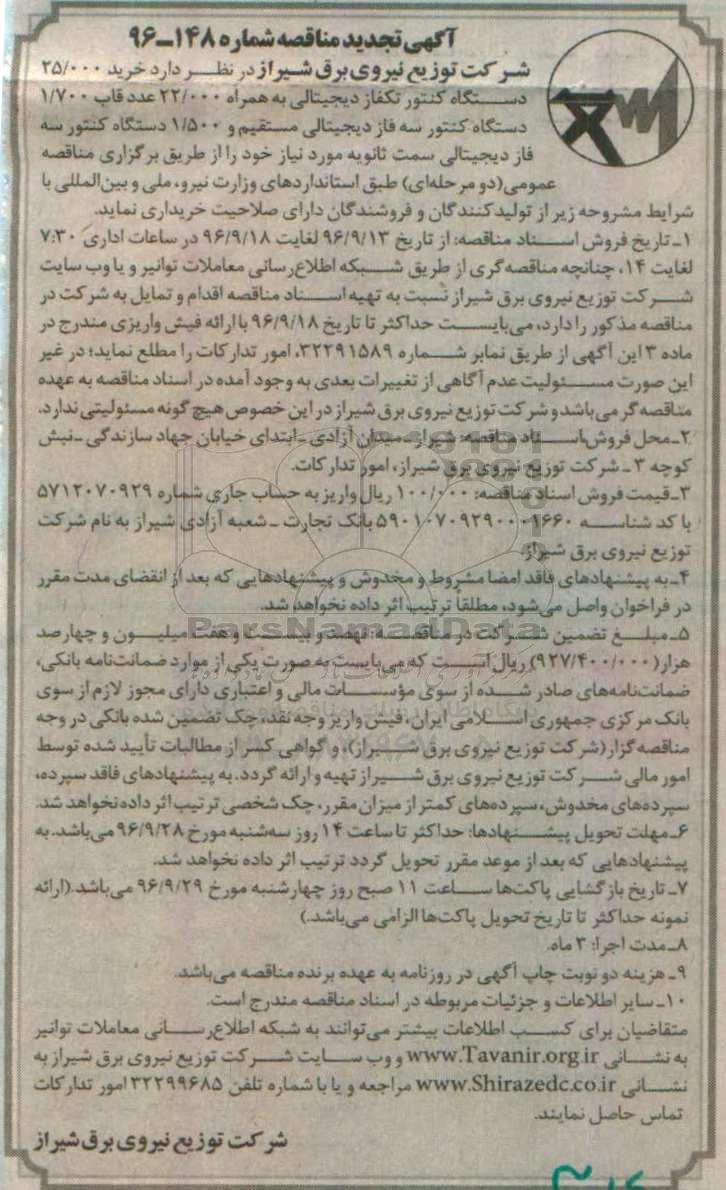 آگهی تجدید مناقصه شماره ۱۴۸-۹۶
شرکت توزیع نیروی برق شیراز در نظر دارد خرید ۲۵/۰۰۰
دستگاه کنتور تکفاز دیجیتالی به همراه ۲۲/۰۰۰ عدد قاب ۱/۷۰۰
دستگاه کنتور سه فاز دیجیتالی مستقیم و ۱/۵۰۰ دستگاه کنتور سه
فاز دیجیتالی سمت ثانویه مورد نیاز خود را از طریق برگزاری مناقصه
عمومی(دو مرحله‌ای) طبق استانداردهای وزارت نیرو، ملی و بین‌المللی با
شرایط مشروحه زیر از تولیدکنندگان و فروشندگان دارای صلاحیت خریداری نماید.
۱-تاریخ فروش اسناد مناقصه: از تاریخ ۹۶/۹/۱۳ لغایت ۹۶/۹/۱۸ در ساعات اداری ۷:۳۰
لغایت ۱۴، چنانچه مناقصه‌گری از طریق شبکه اطلاع‌رسانی معاملات توانیر و یا وب سایت
شرکت توزیع نیروی برق شیراز نسبت به تهیه اسناد مناقصه اقدام و تمایل به شرکت در
مناقصه مذکور را دارد، می‌بایست حداکثر تا تاریخ ۹۶/۹/۱۸ با ارائه فیش واریزی مندرج در
ماده ۳ این آگهی از طریق نمابر شماره ۳۲۲۹۱۵۸۹، امور تدارکات را مطلع نماید؛ در غیر
این صورت مسئولیت عدم آگاهی از تغییرات بعدی به وجود آمده در اسناد مناقصه به عهده
مناقصه‌گر می‌باشد و شرکت توزیع نیروی برق شیراز در این خصوص هیچ گونه مسئولیتی ندارد.
۲-محل فروش اسناد مناقصه: شیراز-میدان آزادی-ابتدای خیابان جهاد سازندگی-نبش
کوچه ۳-شرکت توزیع نیروی برق شیراز، امور تدارکات.
۳-قیمت فروش اسناد مناقصه: ۱۰۰/۰۰۰ ریال واریز به حساب جاری شماره ۵۷۱۲۰۷۰۹۲۹
با کد شناسه ۵۹۰۱۰۷۰۹۲۹۰۰۰۱۶۶۰ بانک تجارت - شعبه آزادی شیراز به نام شرکت
توزیع نیروی برق شیراز.
۴-به پیشنهادهای فاقد امضا مشروط و مخدوش و پیشنهادهایی که بعد از انقضای مدت مقرر
در فراخوان واصل می‌شود، مطلقاً ترتیب اثر داده نخواهد شد.
ParsNamadData
۵-مبلغ تضمین شرکت در مناقصه: نهصد و بیست و هفت میلیون و چهارصد
هزار(۹۲۷/۴۰۰/۰۰۰) ریال است که می‌بایست به صورت یکی از موارد ضمانت‌نامه بانکی،
ضمانت‌نامه‌های صادر شده از سوی مؤسسات مالی و اعتباری دارای مجوز لازم از سوی
بانک مرکزی جمهوری اسلامی ایران، فیش واریز وجه نقد، چک تضمین شده بانکی در وجه
مناقصه‌گزار(شرکت توزیع نیروی برق شیراز)، و گواهی کسر از مطالبات تأیید شده توسط
امور مالی شرکت توزیع نیروی برق شیراز تهیه و ارائه گردد. به پیشنهادهای فاقد سپرده،
سپرده‌های مخدوش، سپرده‌های کمتر از میزان مقرر، چک شخصی ترتیب اثر داده نخواهد شد.
۶-مهلت تحویل پیشنهادها: حداکثر تا ساعت ۱۴ روز سه‌شنبه مورخ ۹۶/۹/۲۸ می‌باشد. به
پیشنهادهایی که بعد از موعد مقرر تحویل گردد ترتیب اثر داده نخواهد شد.
۷-تاریخ بازگشایی پاکت‌ها ساعت ۱۱ صبح روز چهارشنبه مورخ ۹۶/۹/۲۹ می‌باشد.(ارائه
نمونه حداکثر تا تاریخ تحویل پاکت‌ها الزامی می‌باشد.)
۸-مدت اجرا: ۳ ماه.
۹-هزینه دو نوبت چاپ آگهی در روزنامه به عهده برنده مناقصه می‌باشد.
۱۰-سایر اطلاعات و جزئیات مربوطه در اسناد مناقصه مندرج است.
متقاضیان برای کسب اطلاعات بیشتر می‌توانند به شبکه اطلاع‌رسانی معاملات توانیر
به نشانی www.Tavanir.org.ir و وب سایت شرکت توزیع نیروی برق شیراز به
نشانی www.Shirazedc.co.ir مراجعه و یا با شماره تلفن ۳۲۲۹۹۶۸۵ امور تدارکات
تماس حاصل نمایند.
شرکت توزیع نیروی برق شیراز